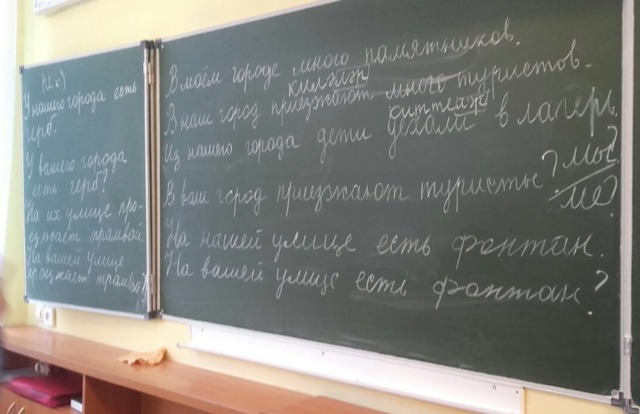 (II к)
У нашего города есть
герб.
У вашего города
есть герб?
На их улице про-
езжает трамвай.
На вашей улице
проезжает трамвай?
В моём городе много памятников.
килгәлән
В наш город приезжают много туристов.
киттеләр
Из нашего города дети уехали в лагерь.
В ваш город приезжают туристы?
мы?
ме?
На нашей улице есть фонтан.
На вашей улице есть фонтан?